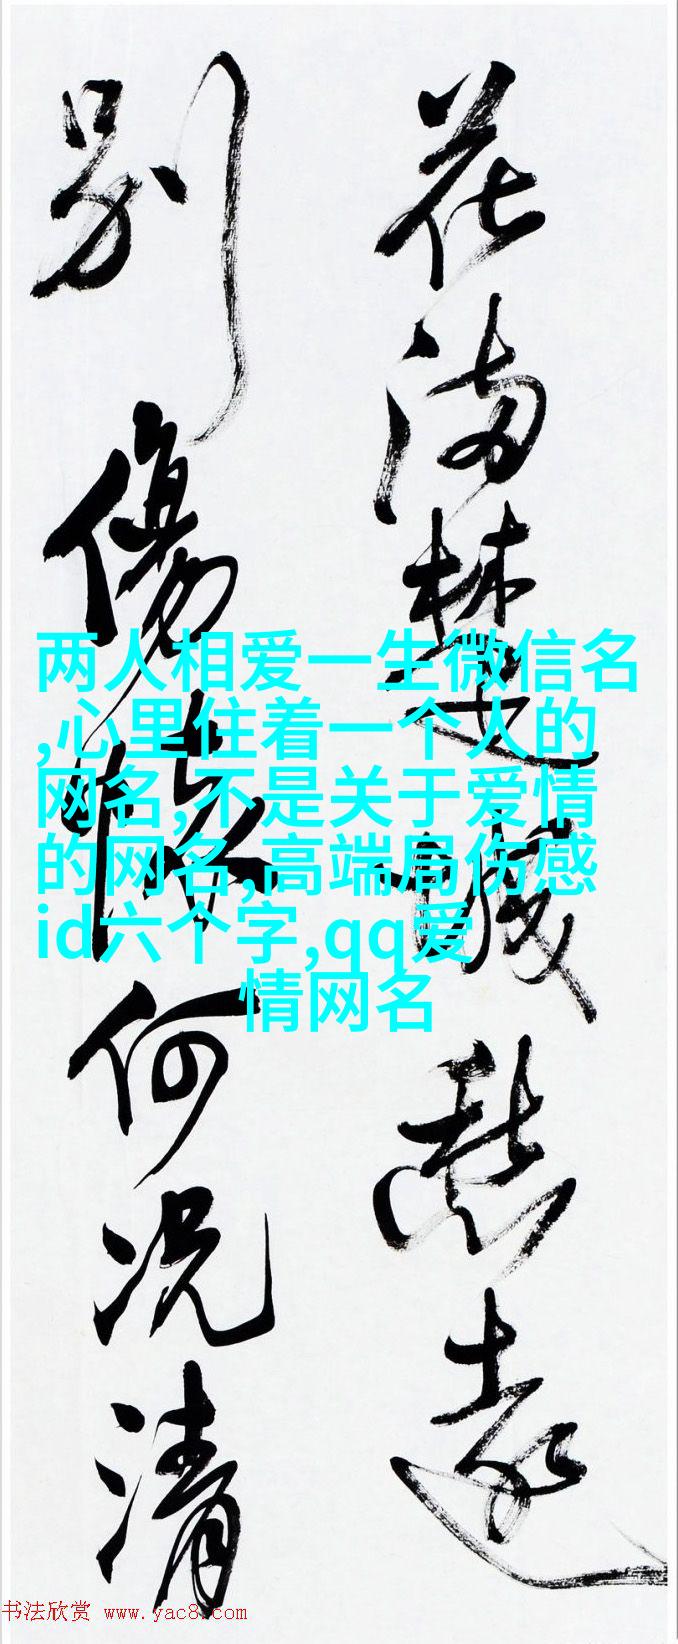 花满楚城愁遠
别傷何况清
两人相爱一生微信名
,心里住着一个人的
网名,不是关于爱情
的网名,高端局伤感
id六个字,qq爱
情网名
书法欣赏 www.yac8.com